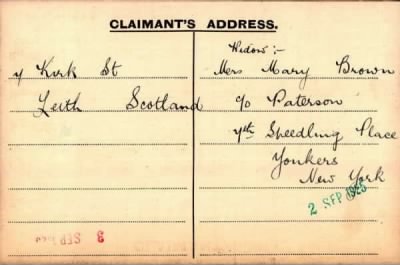 CLAIMANT'S ADDRESS.
7 Kirk St
Leith Scotland
Widow :-
Mrs Mary Brown
c/o Paterson
7th Speedling Place
Yonkers
New York
2 SEP 1925
3 SEP